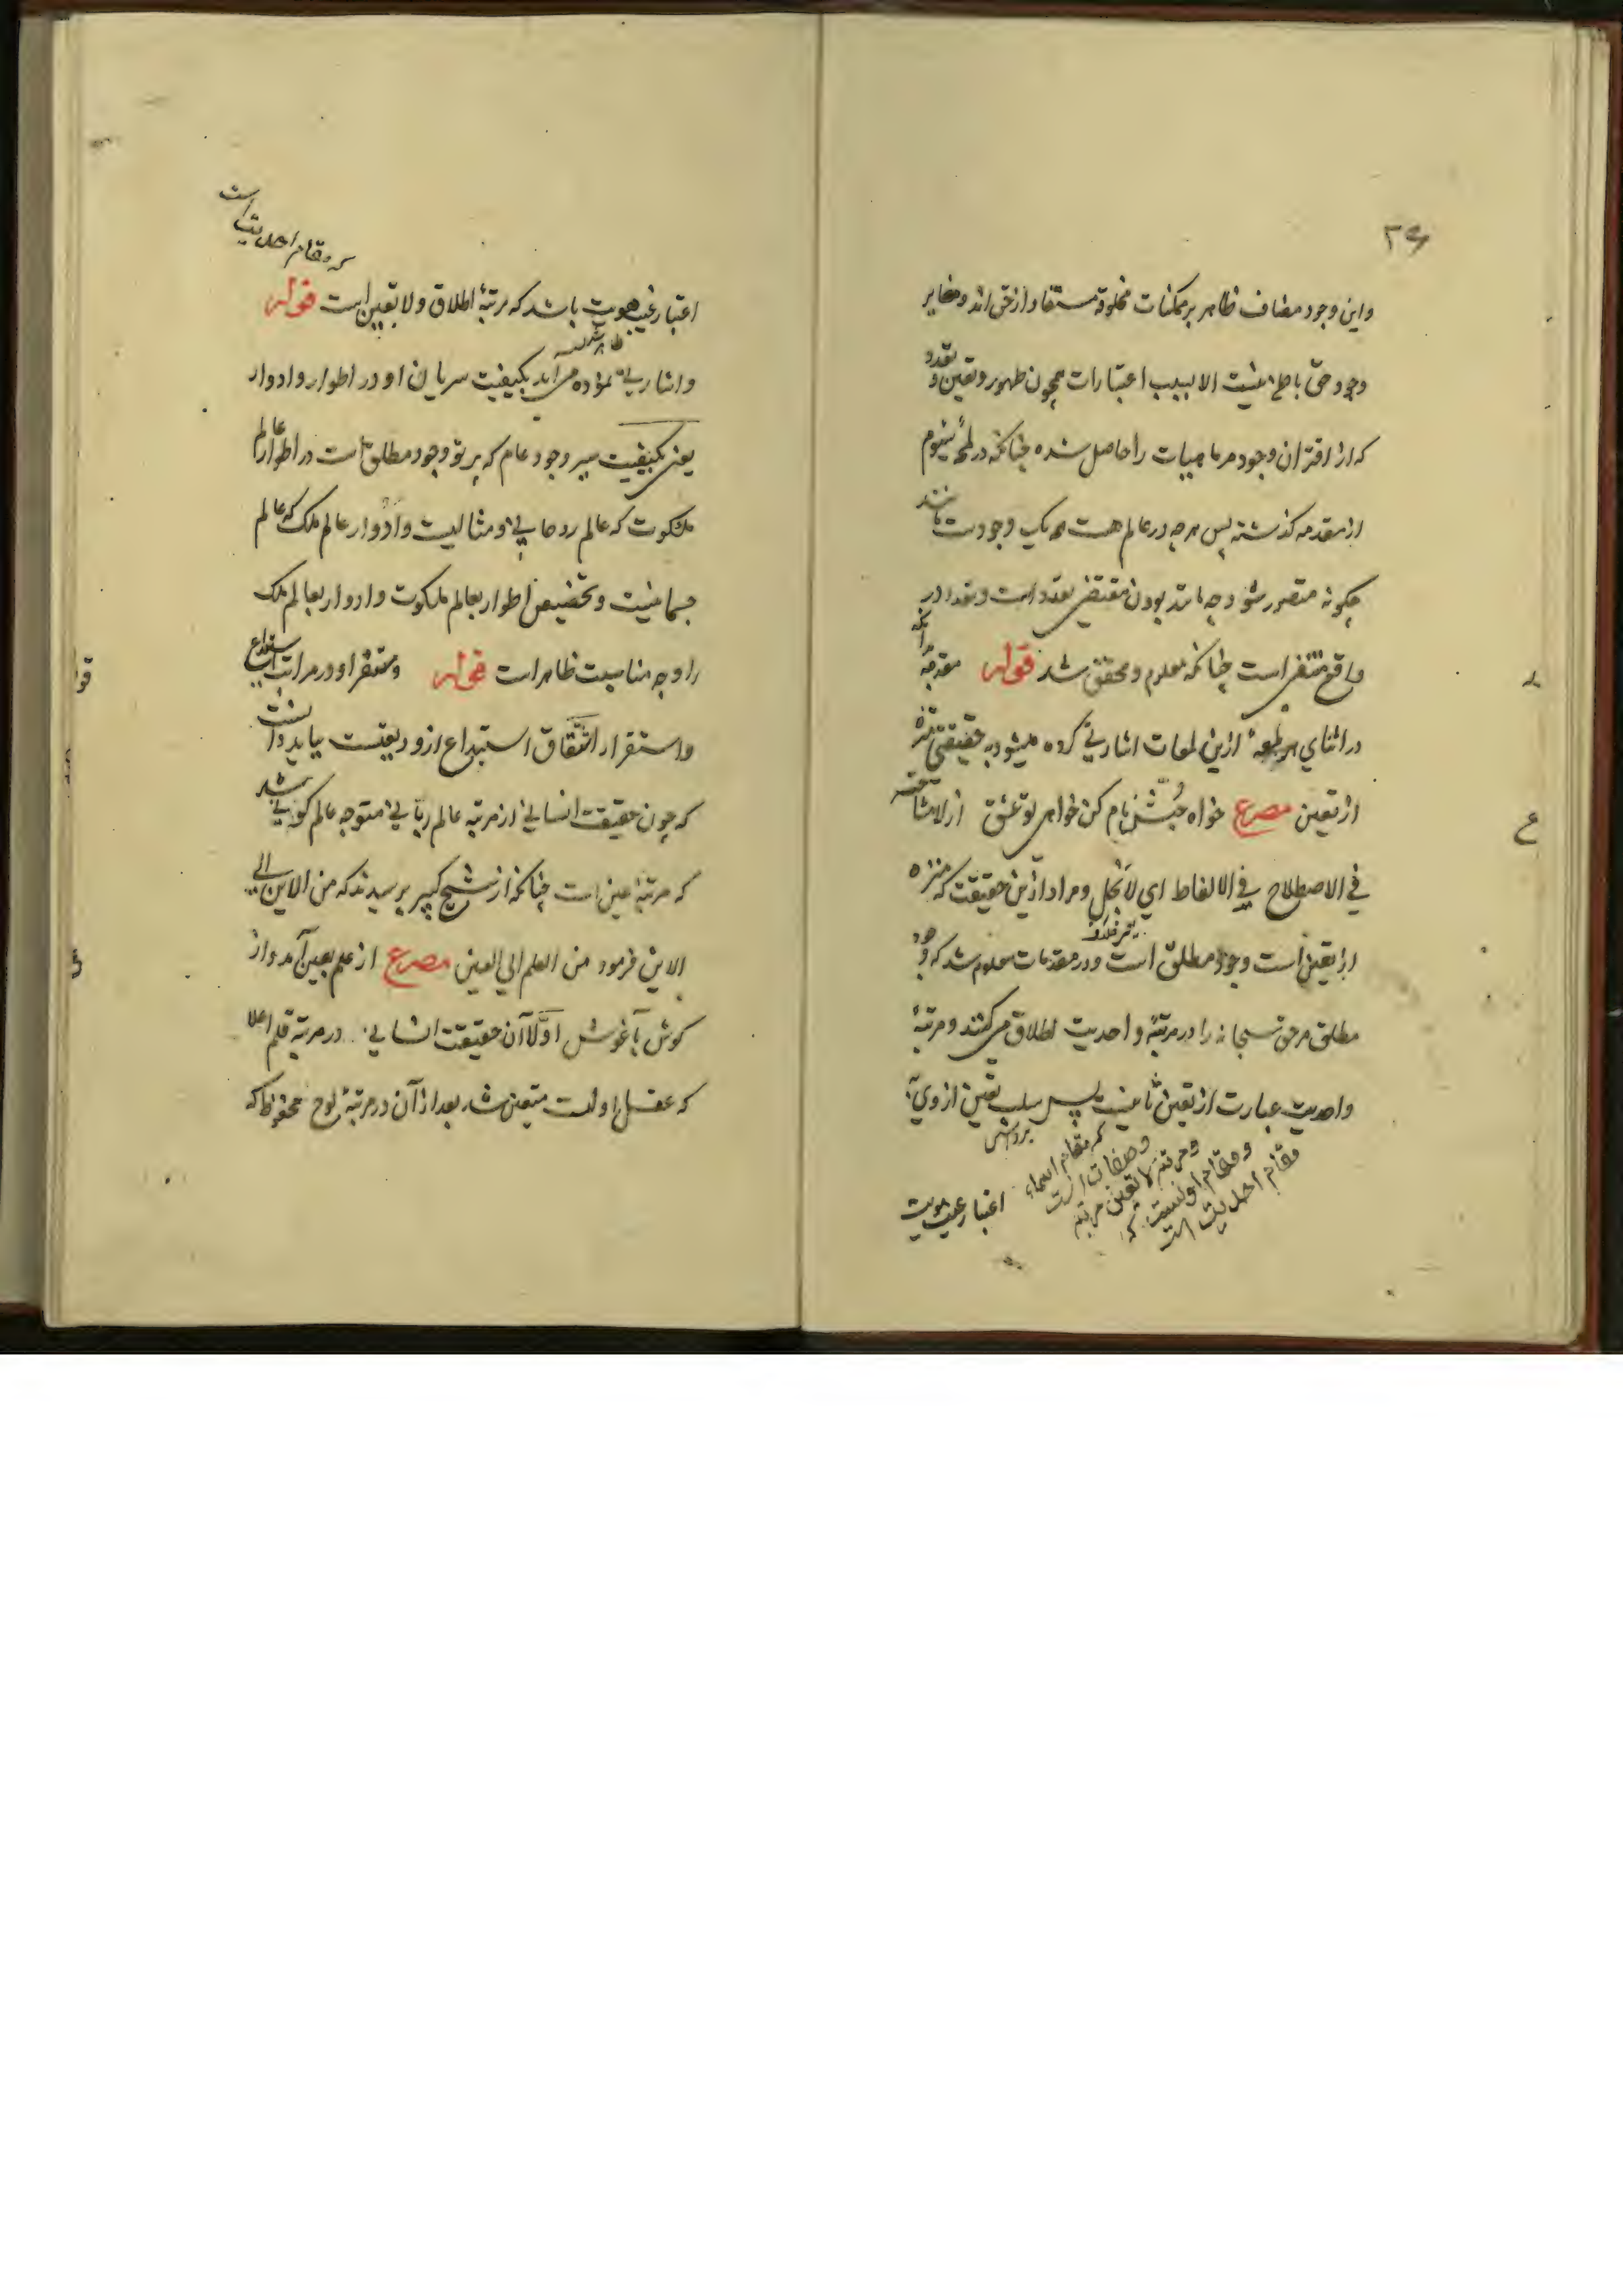 ۲۶
واین وجود مضاف ظاهر بر ممکنات مخلوقه مستفاد از حق اند و مغایر
وجود حق باطن نیست الا بسبب اعتبارات همچون ظهور و تعین و تعدد
که از اقتران وجود مر ماهیات را حاصل شده چنانکه در لمحهٔ سیوم
از مقدمه کذشته پس هر چه در عالم هست همه یک وجودست مانند
چکونه متصور شود چه مانند بودن مقتضی تعدد است و تعدد در
واقع منتفی است چنانکه معلوم و محقق شد قوله مقدمه آنکه
در اثنای هر لمعهٔ ازین لمعات اشارتی کرده میشود به حقیقتی منزه
از تعین مصرع خواه حبّش نام کن خواهی تو عشق از لا مشاحه
في الاصطلاح في الالفاظ اي لا نبخل و مراد ازین حقیقت که منزه
از تعین است وجود مطلق است و در مقدمات معلوم شد که وجود
مطلق مر حق سبحانه را در مرتبهٔ واحدیت اطلاق می کنند و مرتبهٔ
واحدیت عبارت از تعین ثانیست پس سلب تعین از وی
که مقام اسماء
و صفات است
و مرتبهٔ لا تعین مرتبه
و مقام اولیست که
مقام احدیت است
اعتبار غیب هویت
که مقام احدیت است
اعتبار غیب هویت باشد که مرتبهٔ اطلاق و لا تعین است قوله
و اشارتی نموده می آید بکیفیت سریان او در اطوار و ادوار
یعنی بکیفیت سیر وجود عام که پرتو وجود مطلق است در اطوار عالم
ملکوت که عالم روحانی و مثالیست و ادوار عالم ملک که عالم
جسمانیست و تخصیص اطوار بعالم ملکوت و ادوار بعالم ملک
را وجه مناسبت ظاهر است قوله و ستقراء در مراتب استیداع
و استقرار اشتقاق استیداع از ودیعتست بباید دانست
که چون حقیقت انسانی از مرتبه عالم ربّانی متوجه عالم کونی شد
که مرتبهٔ عین است چنانکه از شیخ کبیر پرسیدند که من الاین الی
الاین فرمود من العلم الي العین مصرع از علم بعین آمد و از
کوش بآغوش اوّلا آن حقیقت انسانی در مرتبهٔ قلم اعلا
که عقل اولست متعین شد بعد از آن در مرتبهٔ لوح محفوظ که